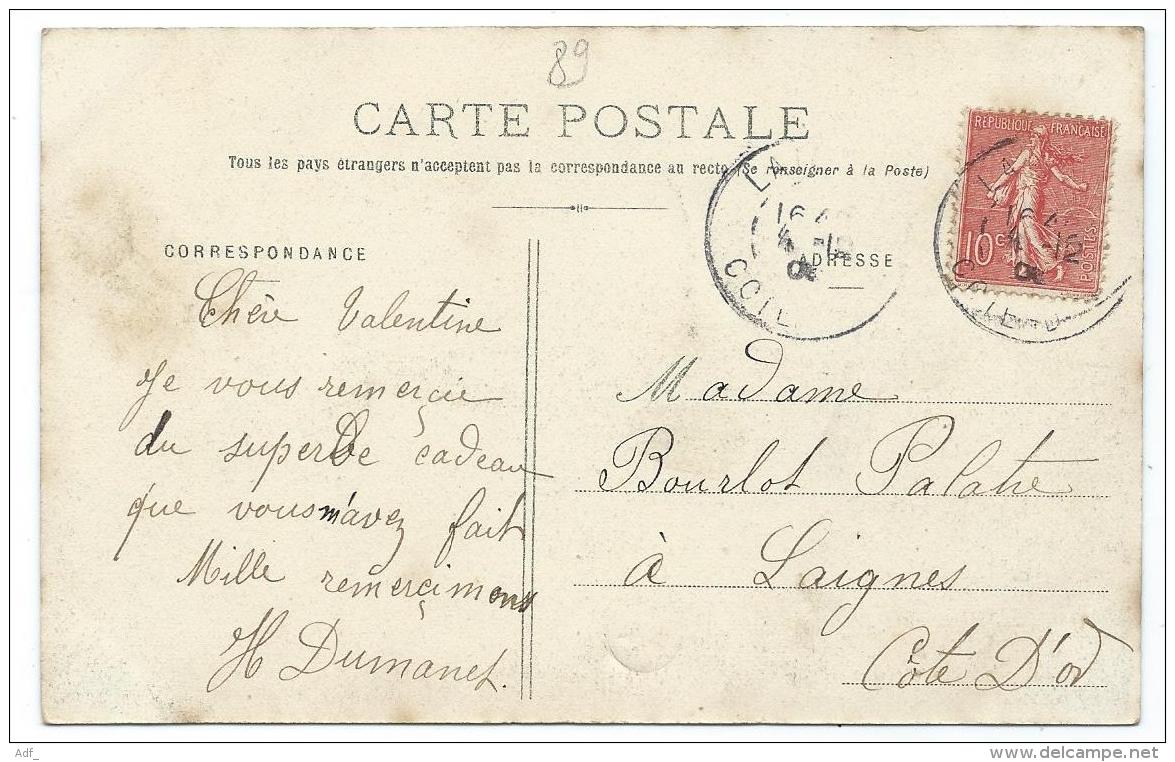 89
CARTE POSTALE
Tous les pays étrangers n'acceptent pas la correspondance au recto (Se renseigner à la Poste)
CORRESPONDANCE
Chère Valentine
Je vous remerçie
du superbe cadeau
que vous m'avez fait
Mille remerçimens
H Dumanet.
RÉPUBLIQUE FRANÇAISE
10 c
POSTES
LA
16
ADRESSE
Madame
Bourlot Palatre
à Laignes
Côte D'or
Adf_
www.delcampe.net